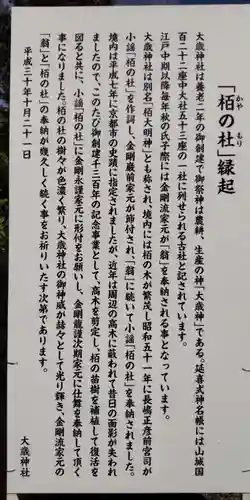 「栢の社」縁起
かや もり
大歳神社は養老二年の御創建で御祭神は農耕、生産の神「大歳神」である。延喜式神名帳には山城国
百二十二座中大社五十三座の一社に列せられる古社と記されています。
江戸中期以降毎年秋の氏子祭には金剛流家元が「翁」を奉納される事となっています。
大歳神社は別名「栢大明神」とも称され、境内には栢の木が繁茂し昭和五十一年に長嶋正彦前宮司が
小謡「栢の社」を作詞し、金剛巌前家元が節付され、「翁」に続いて小謡「栢の社」を奉納されました。
境内は平成七年に京都市の史蹟に指定されましたが、近年は周辺の高木に蔽われて昔日の面影が失われ
ましたので、このたび御創建千三百年の記念事業として、高木を剪定し、栢の苗樹を補植して復活を
図ると共に、小謡「栢の社」に金剛永謹家元に形付をお願いし、金剛龍謹次期家元に仕舞を奉納して頂く
事になりました。栢の社の緑々が色濃く繁り、大歳神社の御神威が赫々として光り輝き、金剛流家元の
「翁」と「栢の社」の奉納が幾久しく続く事をお祈りいたす次第であります。
平成三十年十月二十一日
大歳神社